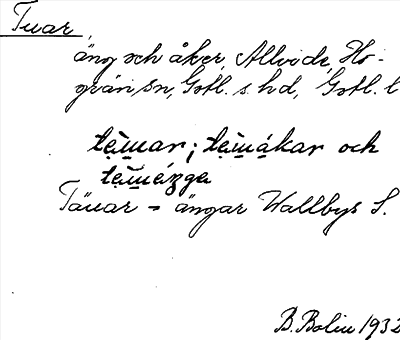 Tuar,
äng och åker, Allvide, Ho-
grän sn, Gotl. s. hd, Gotl. l
tèmar; tèmákar och
tèmézga
Täuar = ängar Wallbys S.
B. Bolin 1932